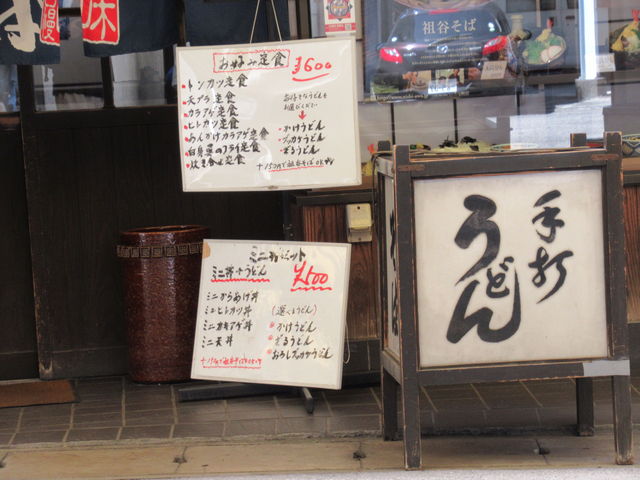 床
祖谷そば
おこのみ定食 ¥600
トンカツ定食
天プラ定食
カラアゲ定食
ヒレカツ定食
あんかけカラアゲ定食
白身魚のフライ定食
お好きなうどんを
お選びください
かけうどん
ブッカケうどん
ざるうどん
+150円で祖谷そばOK
ミニ丼セット
ミニ丼+うどん ¥500
ミニからあげ丼
ミニヒレカツ丼
ミニカキアゲ丼
ミニ天丼
(選べるうどん)
かけうどん
ざるうどん
おろしブッカケうどん
+150円で祖谷そばOK
手打
うどん